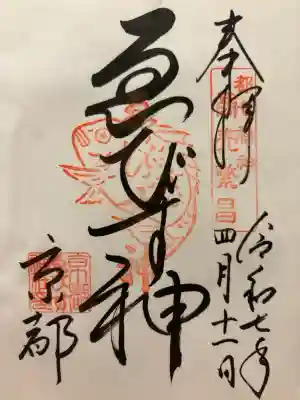 奉拝
令和七年
四月十一日
ゑびす神
京都